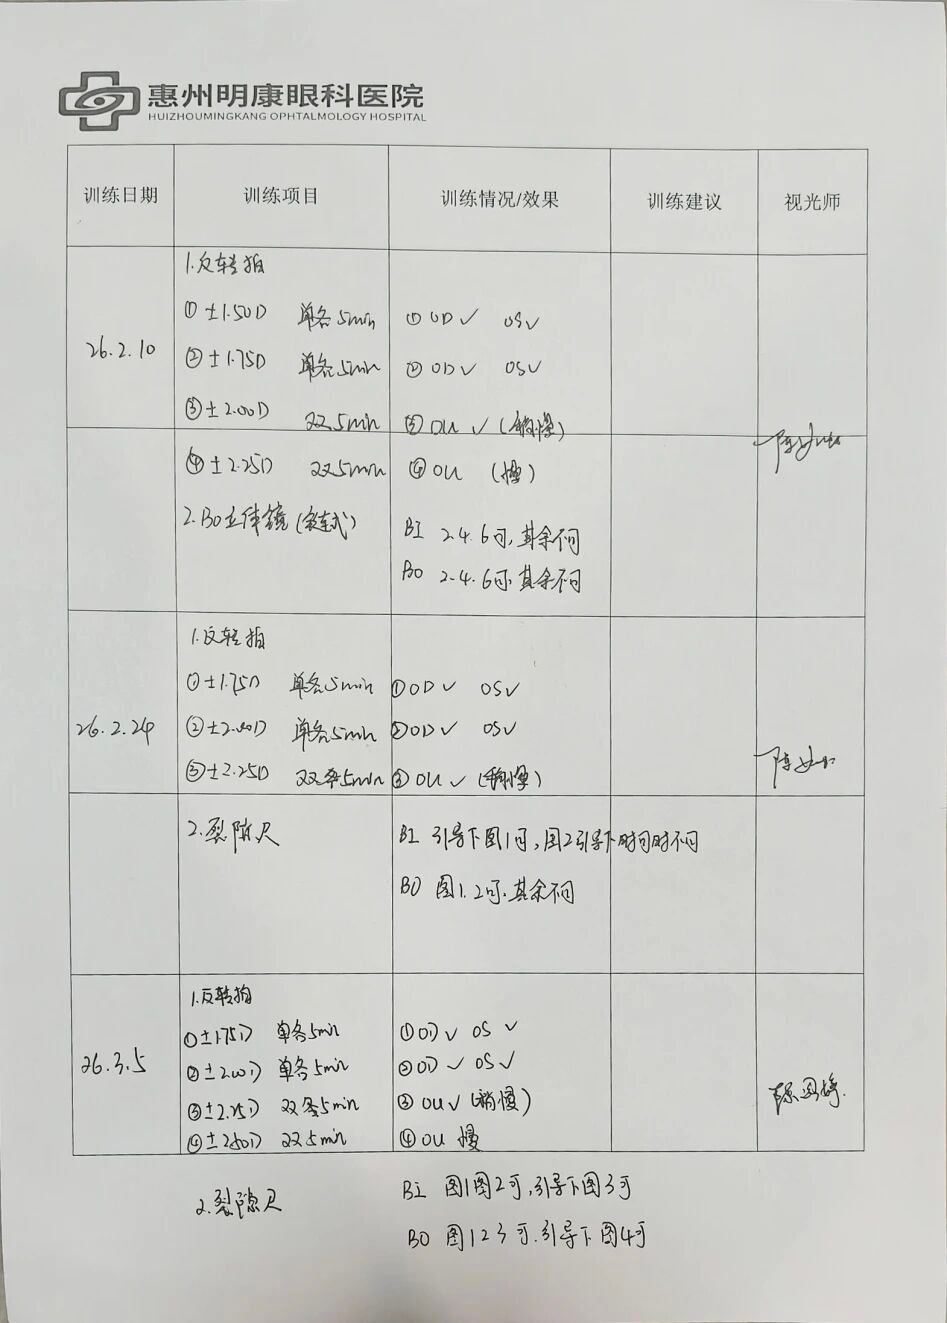 惠州明康眼科医院
HUIZHOUMINGKANG OPHTALMOLOGY HOSPITAL
训练日期 训练项目 训练情况/效果 训练建议 视光师
1.反转拍
① ±1.50D 单各5min ① OD✓ OS✓
26.2.10
② ±1.75D 单各5min ② OD✓ OS✓
③ ±2.00D 双5min ③ OU ✓ (稍慢)
④ ±2.25D 双5min ④ OU (慢)
2.BO立体镜 BI 2.4.6可,其余不可
BO 2.4.6可.其余不可
1.反转拍
① ±1.75D 单各5min ① OD✓ OS✓
26.2.24
② ±2.00D 单各5min ② OD✓ OS✓
③ ±2.25D 双各5min ③ OU ✓ (稍慢)
2.裂隙尺 BI 引导下图1可,图2引导下时可时不可
BO 图1.2可.其余不可
1.反转拍
① ±1.75D 单各5min ① OD✓ OS ✓
26.3.5
② ±2.00D 单各5min ② OD✓ OS✓
③ ±2.25D 双各5min ③ OU✓ (稍慢)
④ ±2.50D 双5min ④ OU 慢
2.裂隙尺 BI 图1图2可,引导下图3可
BO 图123可.引导下图4可